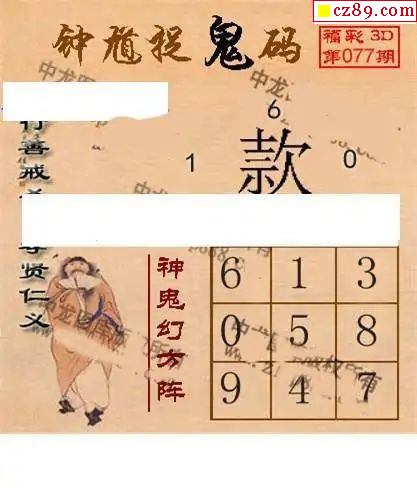 cz89.com
钟馗捉鬼码
福彩3D
第077期
6
1 款 0
行善戒
尊贤仁义
神鬼幻方阵
6 1 3
0 5 8
9 4 7